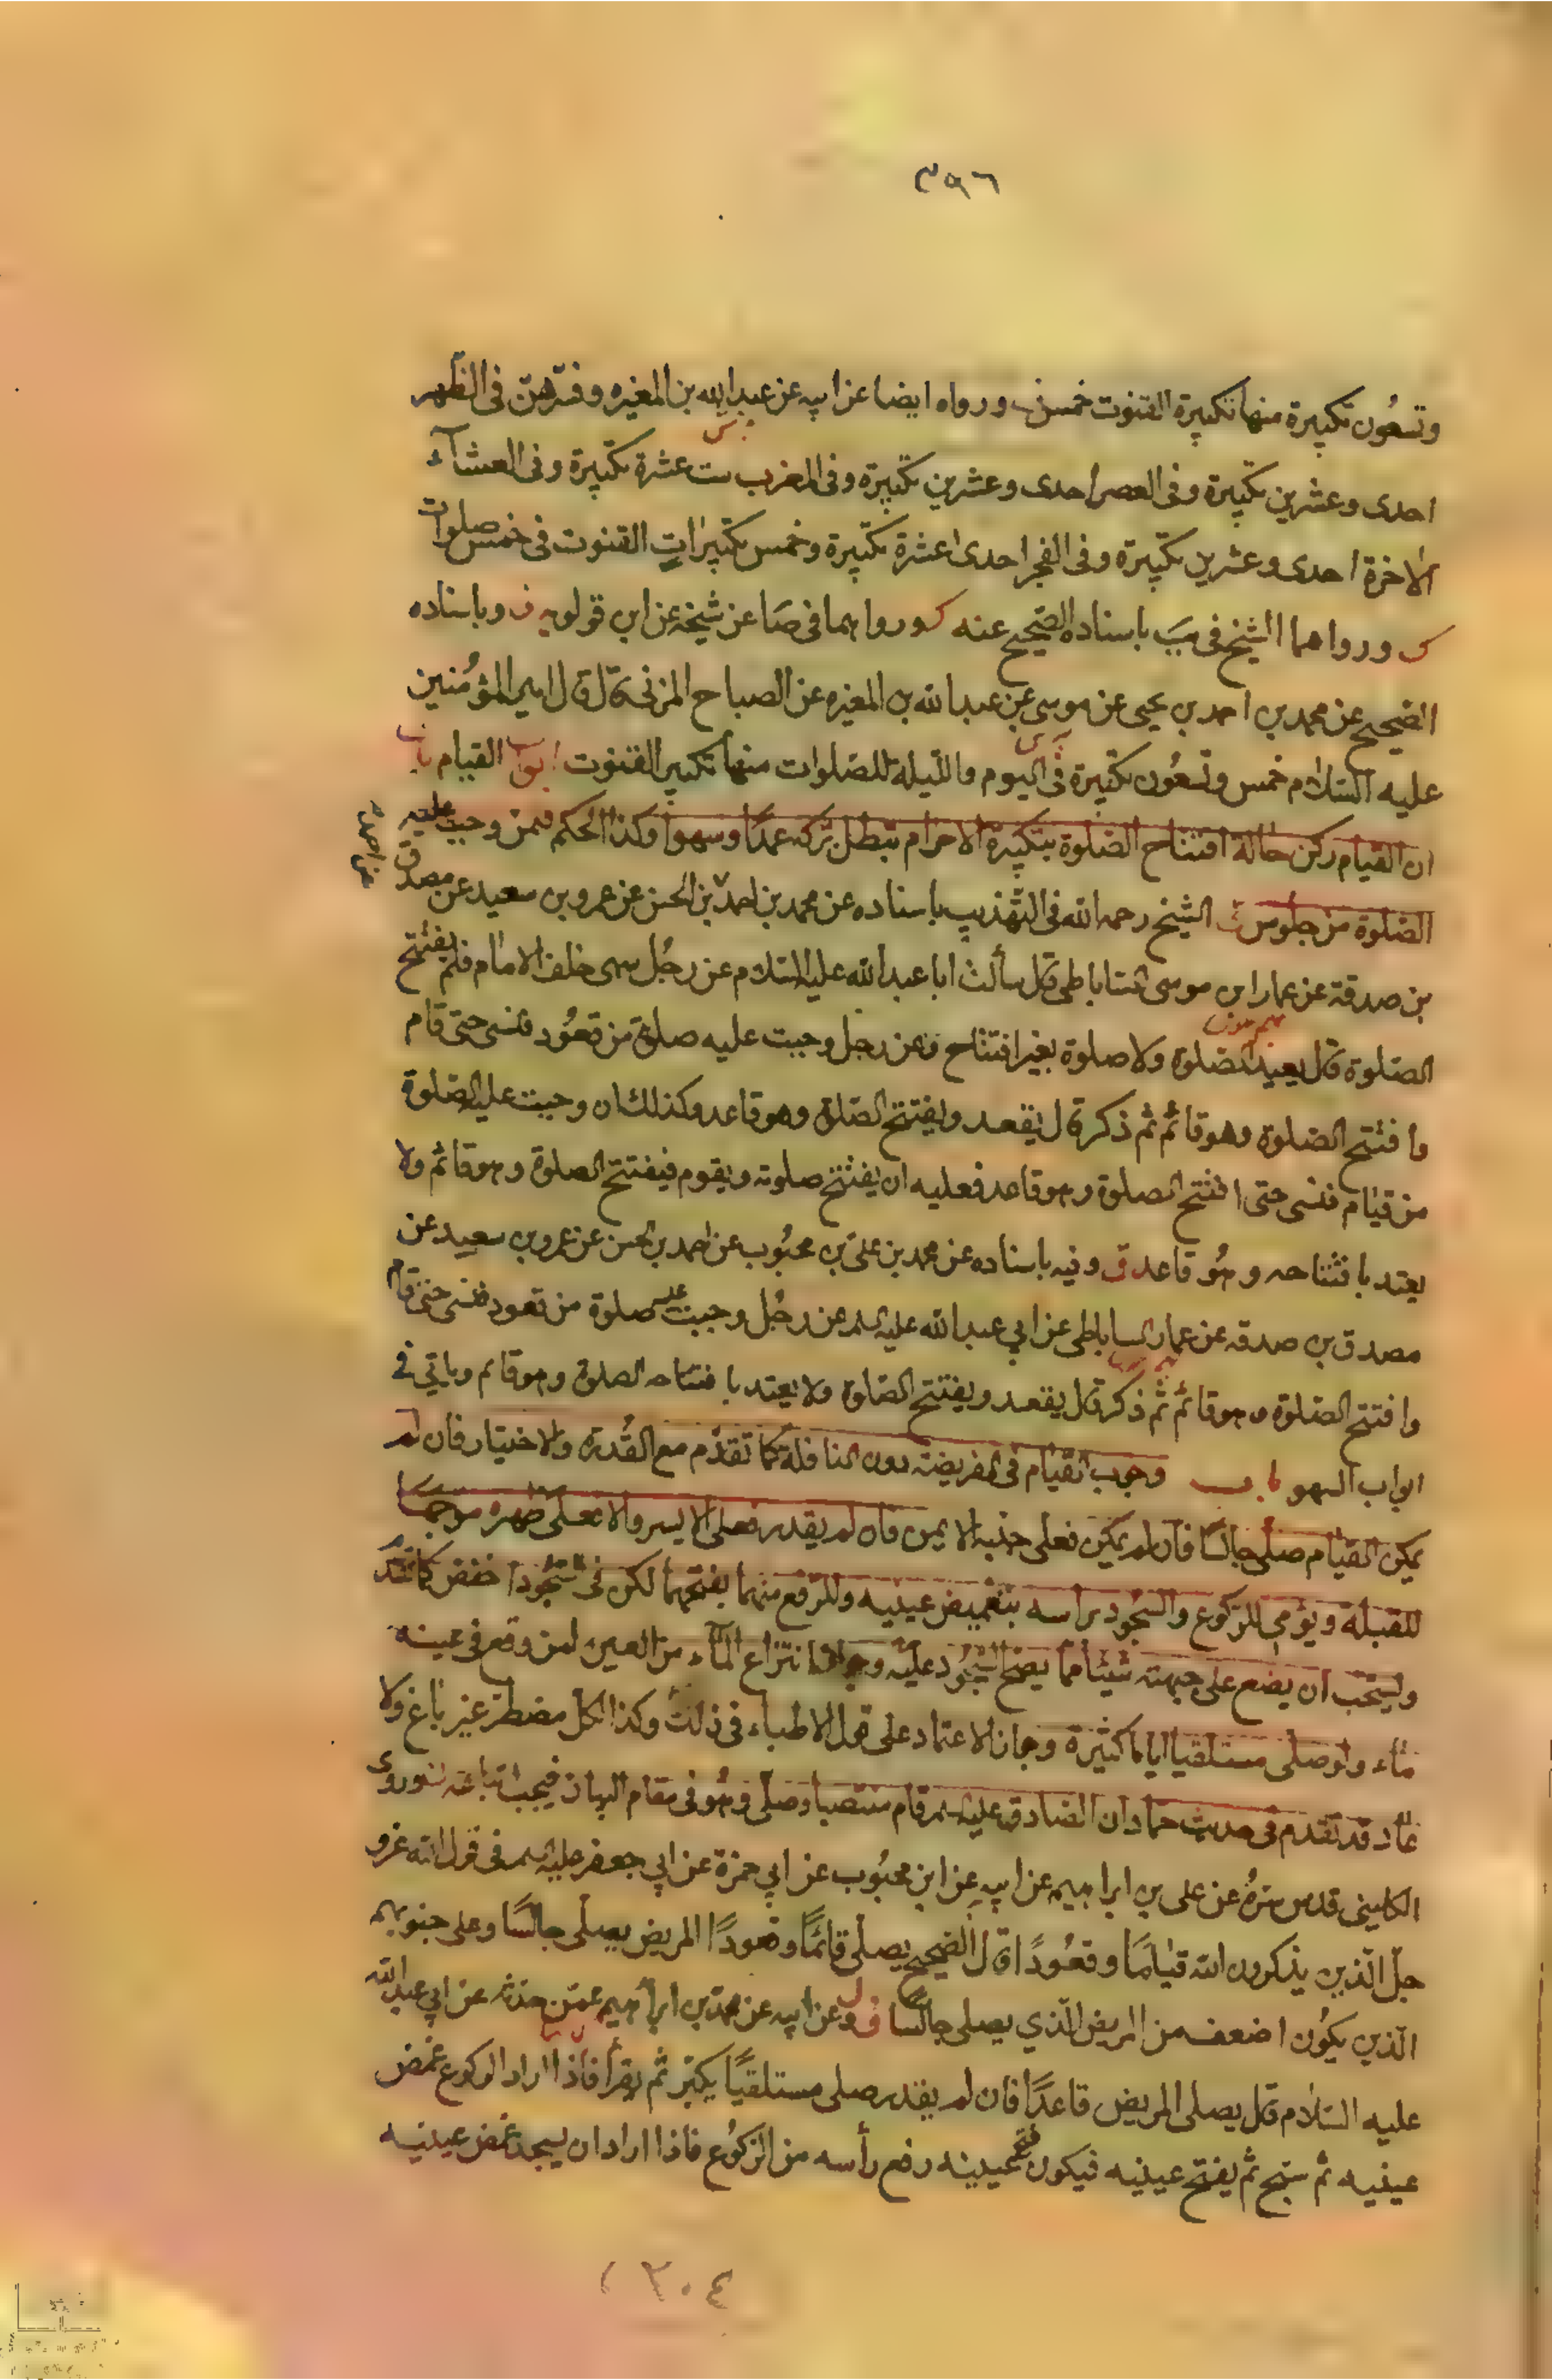 ٣٩٦
وتسعون تكبيرة منها تكبيرة القنوت خمس ورواه ايضا عن ابيه عن عبد الله بن المغيره وفسرهن فى الظهر
احدى وعشرين تكبيرة وفى العصر احدى وعشرين تكبيرة وفى المغرب ست عشرة تكبيرة وفى العشآء
الاخرة احدى وعشرين تكبيرة وفى الفجر احدى عشرة تكبيرة وخمس تكبيرات القنوت فى خمس صلوات
ورواهما الشيخ فى يب باسناده الصحيح عنه ورواهما فى صا عن شيخه عن ابن قولويه وباسناده
الصحيح عن محمد بن احمد بن يحيى عن موسى عن عبد الله بن المغيره عن الصباح المزنى قال قال امير المؤمنين
عليه السلام خمس وتسعون تكبيرة فى اليوم والليلة للصلوات منها تكبير القنوت ابواب القيام باب
ان القيام ركن حالة افتتاح الصلوة بتكبيرة الاحرام تبطل بتركه عمدا وسهوا وكذا الحكم فيمن وجبت عليه
الصلوة من جلوس الشيخ رحمه الله فى التهذيب باسناده عن محمد بن احمد بن الحسن عن عمرو بن سعيد عن مصدق
بن صدقة عن عمار ابن موسى الساباطى قال سألت ابا عبد الله عليه السلام عن رجل سهى خلف الامام فلم يفتتح
الصلوة قال يعيد الصلوة ولا صلوة بغير افتتاح وعن رجل وجبت عليه صلوة من قعود فنسى حتى قام
وافتتح الصلوة وهو قائم ثم ذكر قال يقعد ويفتتح الصلوة وهو قاعد وكذلك ان وجبت عليه الصلوة
من قيام فنسى حتى افتتح الصلوة وهو قاعد فعليه ان يفتتح صلوته ويقوم فيفتتح الصلوة وهو قائم ولا
يعتد بافتتاحه وهو قاعد ق وفيه باسناده عن محمد بن على بن محبوب عن احمد بن الحسن عن عمرو بن سعيد عن
مصدق بن صدقه عن عمار الساباطى عن ابي عبد الله عليه السلم عن رجل وجبت عليه صلوة من قعود فنسى حتى قام
وافتتح الصلوة وهو قائم ثم ذكر قال يقعد ويفتتح الصلوة ولا يعتد بافتتاحه الصلوة وهو قائم وياتي في
ابواب السهو باب وجوب القيام فى الفريضة دون النافلة كما تقدم مع القدرة والاختيار فان لم
يمكن القيام صلى جالسا فان لم يمكن فعلى جنبه الايمن فان لم يقدر فعلى الايسر والا فعلى ظهره موجها
للقبلة ويؤمى للركوع والسجود براسه بتغميض عينيه وللرفع منهما بفتحهما لكن فى السجود اخفض كما تقدم
ويستحب ان يضع على جبهته شيئا مما يصح السجود عليه وجواز انتزاع المآء من العين لمن وقع فى عينيه
مآء ولو صلى مستلقيا اياما كثيرة وجاز الاعتماد على قول الاطباء فى ذلك وكذا كل مضطر غير باغ ولا
عاد قد تقدم فى حديث حماد ان الصادق عليه السلم قام منتصبا وصلى وهو فى مقام البيان فيجب اتباعه وروى
الكلينى قدس سره عن على بن ابراهيم عن ابيه عن ابن محبوب عن ابي حمزة عن ابي جعفر عليه السلم فى قول الله عز و
جل الذين يذكرون الله قياما وقعودا قال الصحيح يصلى قائما وقعودا المريض يصلى جالسا وعلى جنوبهم
الذين يكون اضعف من المريض الذي يصلى جالسا وعن ابيه عن محمد بن ابراهيم عمن حدثه عن ابي عبد الله
عليه السلام قال يصلى المريض قاعدا فان لم يقدر صلى مستلقيا يكبر ثم يقرأ فاذا اراد الركوع غمض
عينيه ثم سبح ثم يفتح عينيه فيكون فتح عينيه رفع رأسه من الركوع فاذا اراد ان يسجد غمض عينيه
٢٠٤